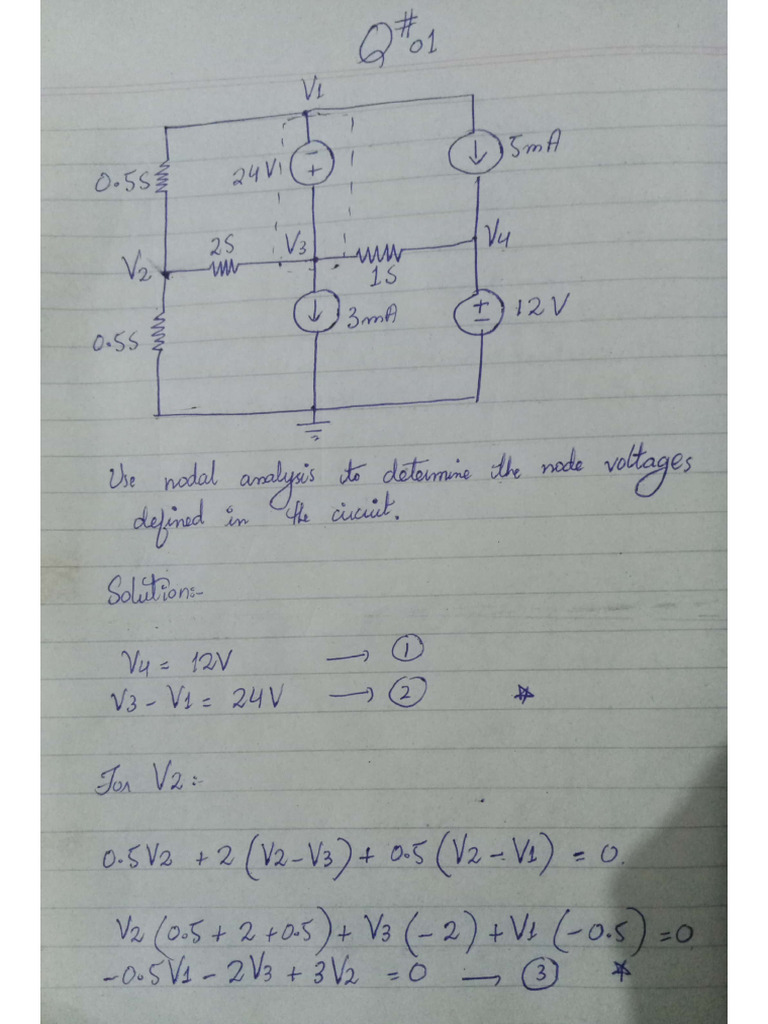 Q#01
V1
0.5S
24V
- +
5mA
V2
2S
V3
1S
V4
0.5S
3mA
+ -
12V
Use nodal analysis to determine the node voltages
defined in the circuit.
Solution:-
V4 = 12V → ①
V3 - V1 = 24V → ② *
For V2:-
0.5V2 + 2(V2-V3) + 0.5(V2-V1) = 0.
V2(0.5 + 2 + 0.5) + V3(-2) + V1(-0.5) = 0
-0.5V1 - 2V3 + 3V2 = 0 → ③ *